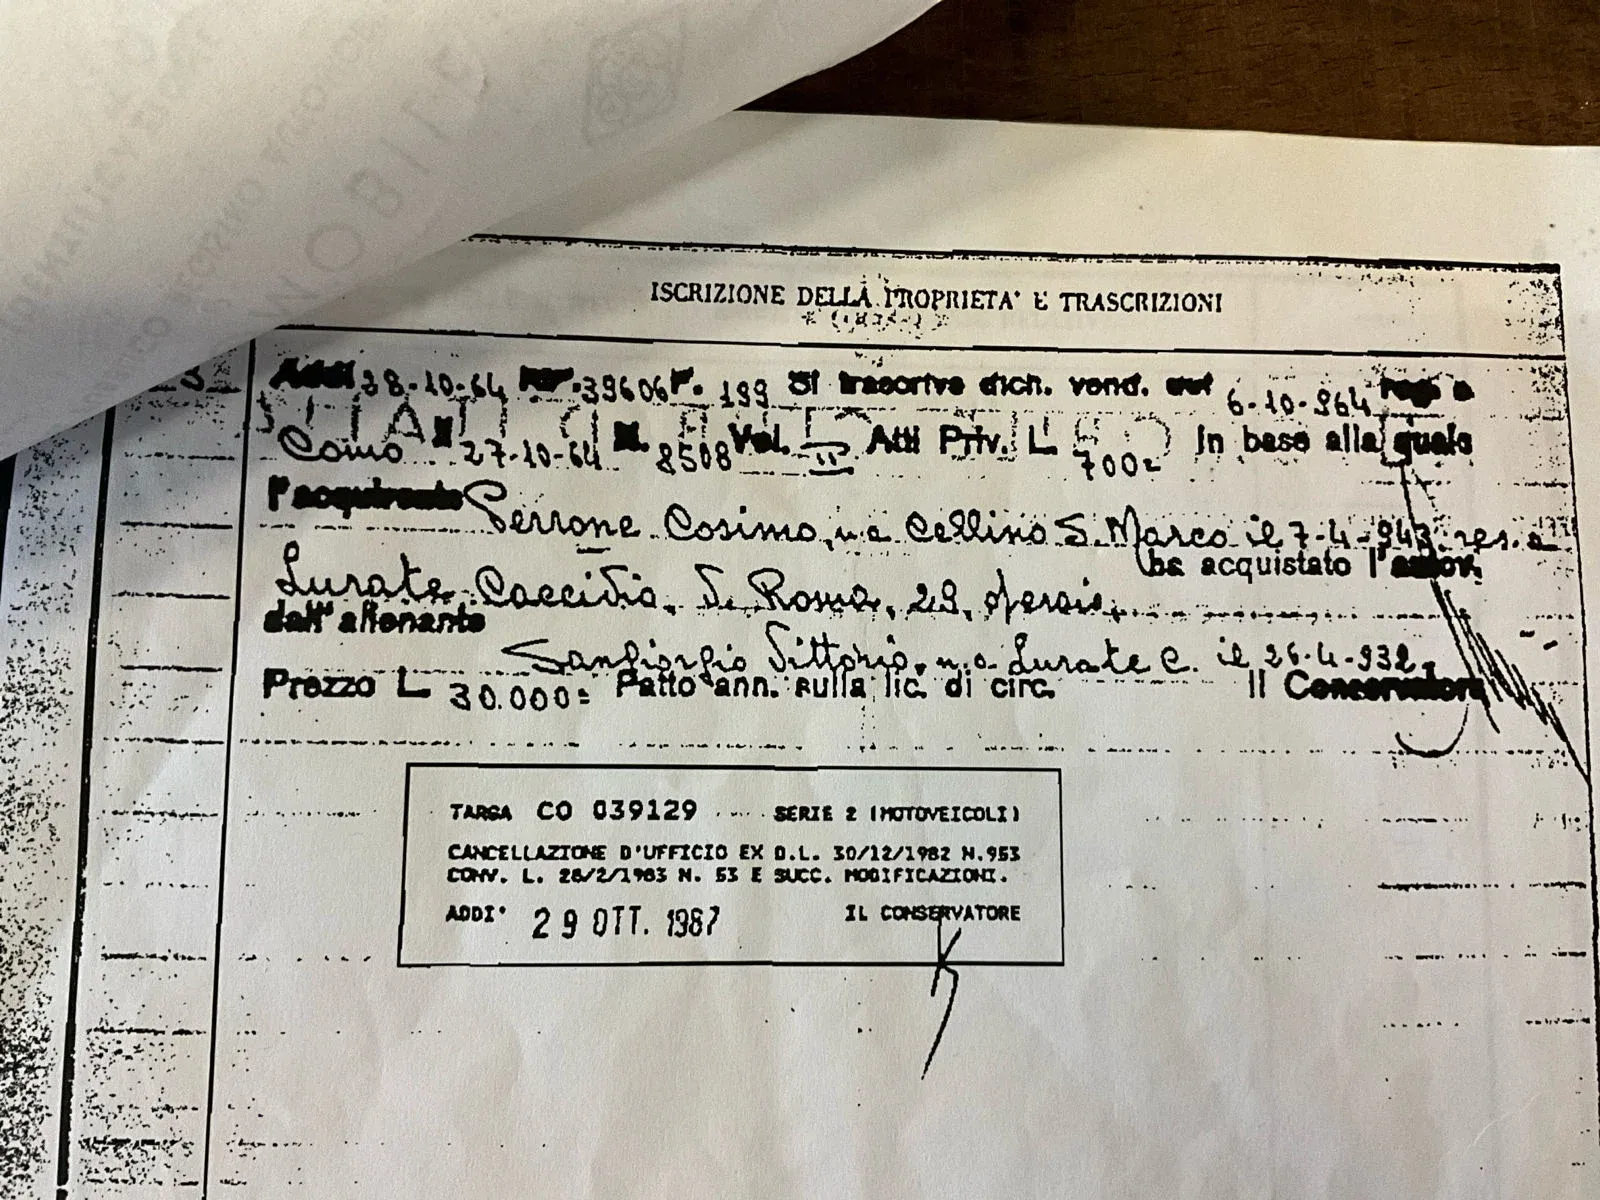 ISCRIZIONE DELLA PROPRIETA' E TRASCRIZIONI
3
Addì 28-10-64 39606 F. 199 Si trascrive dich. vend. aut 6-10-964 reg. a
Como 27-10-64 N. 8508 Vol. II Atti Priv. L. 700= In base alla quale
l'acquirente Perrone Cosimo, n. a Cellino S. Marco il 7-4-943 res. a
ha acquistato l'autov.
Lurate Caccivio, V. Roma, 29, operaio
dall'alienante
Sangiorgio Vittorio, n. a Lurate C. il 26-4-932,
Prezzo L. 30.000= Patto ann. sulla lic. di circ. Il Conservatore
TARGA CO 039129 SERIE 2 (MOTOVEICOLI)
CANCELLAZIONE D'UFFICIO EX D.L. 30/12/1982 N.953
CONV. L. 28/2/1983 N. 53 E SUCC. MODIFICAZIONI.
ADDI' 29 OTT. 1987 IL CONSERVATORE